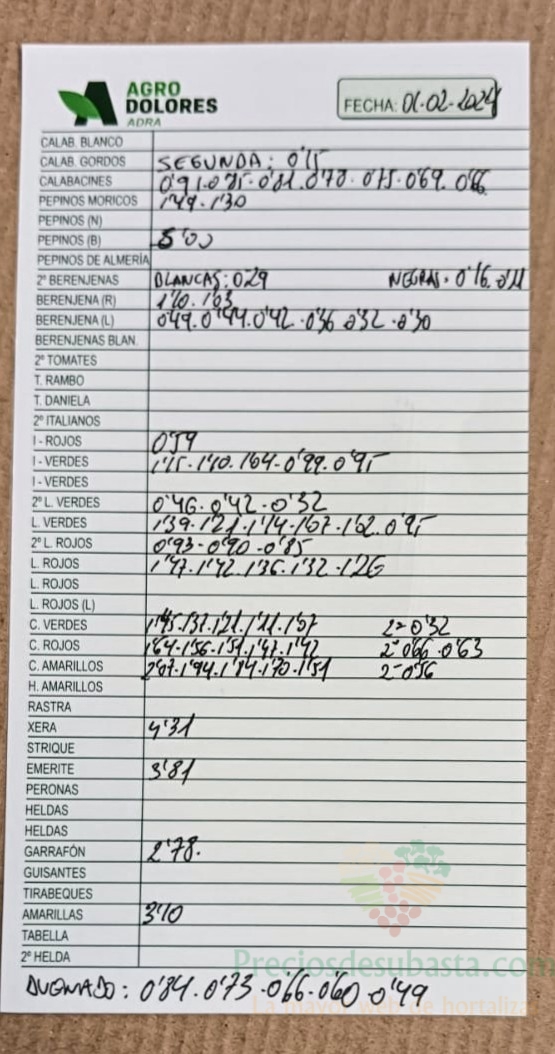 AGRO
DOLORES
ADRA
FECHA: 01-02-2024
CALAB. BLANCO
CALAB. GORDOS SEGUNDA: 0'15
CALABACINES 0'91.0'85.0'81.0'78.0'75.0'69.0'66
PEPINOS MORICOS 1'49.1'30
PEPINOS (N)
PEPINOS (B) 5'00
PEPINOS DE ALMERÍA
2º BERENJENAS BLANCAS: 029 NEGRAS. 0'16.011
BERENJENA (R) 1'10.1'03
BERENJENA (L) 0'49.0'44.0'42.0'36.0'32.0'30
BERENJENAS BLAN.
2º TOMATES
T. RAMBO
T. DANIELA
2º ITALIANOS
I - ROJOS 0'59
I - VERDES 1'15.1'10.1'04-0'99.0'95
I - VERDES
2º L. VERDES 0'46.0'42-0'32
L. VERDES 1'39.1'21.1'14.1'07.1'02.0'95
2º L. ROJOS 0'93-0'90-0'85
L. ROJOS 1'47.1'42.1'36.1'32.126
L. ROJOS
L. ROJOS (L)
C. VERDES 1'45.1'37.1'21.1'11.1'07 2ª 0'32
C. ROJOS 1'64-1'56.1'51.1'47.1'42 2ª 066.0'63
C. AMARILLOS 2'07.1'94.1'84.1'70.1'51 2ª 0'56
H. AMARILLOS
RASTRA
XERA 4'31
STRIQUE
EMERITE 3'81
PERONAS
HELDAS
HELDAS
GARRAFÓN 2'78.
GUISANTES
TIRABEQUES
AMARILLAS 3'10
TABELLA
2º HELDA
Preciosdesubasta.com
QUEMADO: 0'84.0'73.0'66.0'60.0'49
La mayor web de hortaliza